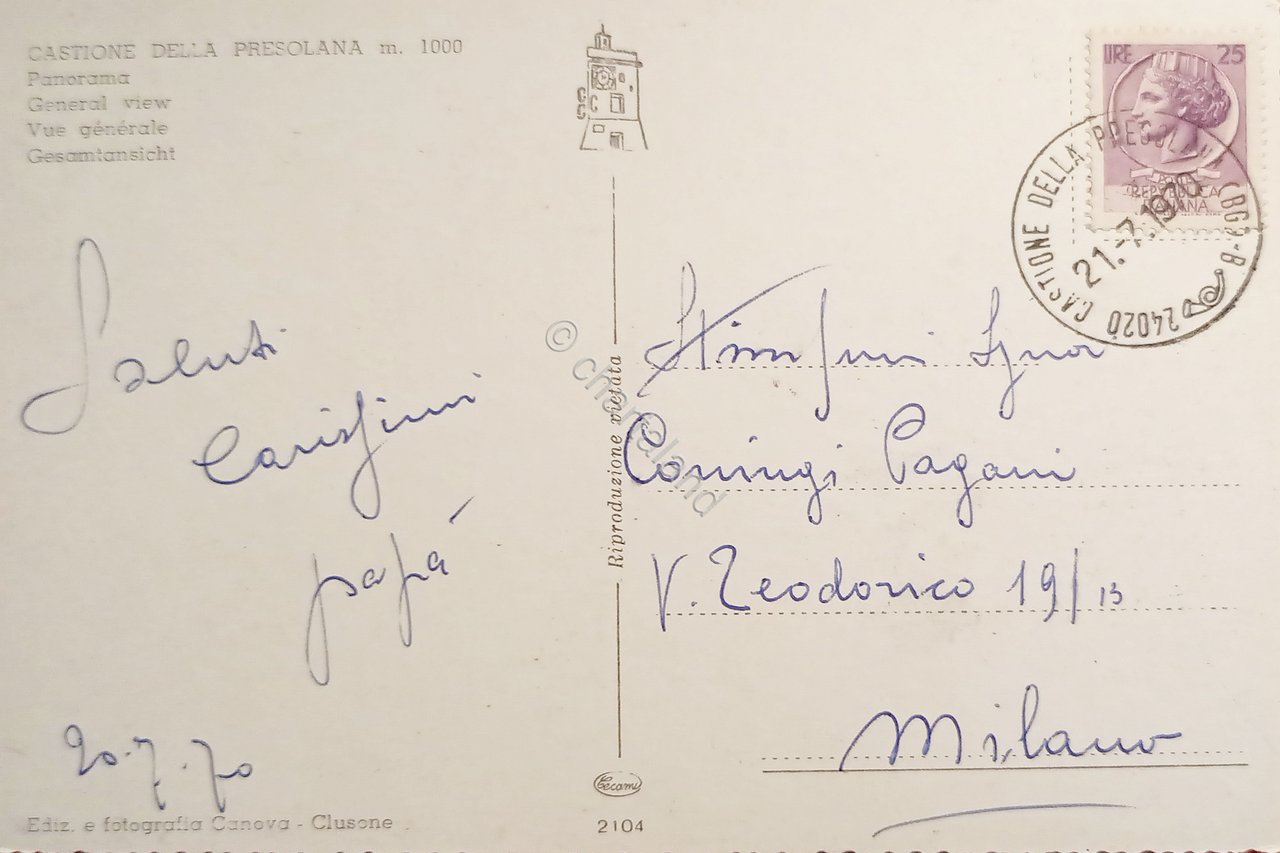 CASTIONE DELLA PRESOLANA m. 1000
Panorama
General view
Vue générale
Gesamtansicht
Saluti
Carissimi
papá
20.7.70
Ediz. e fotografia Canova - Clusone
Riproduzione vietata
Cecami
2104
LIRE 25
REPUBBLICA
ITALIANA
24020 CASTIONE DELLA PRESOLANA (BG) - B
21.-7.1970
Coniugi Pagani
V. Teodorico 19/13
Milano
© chartaland